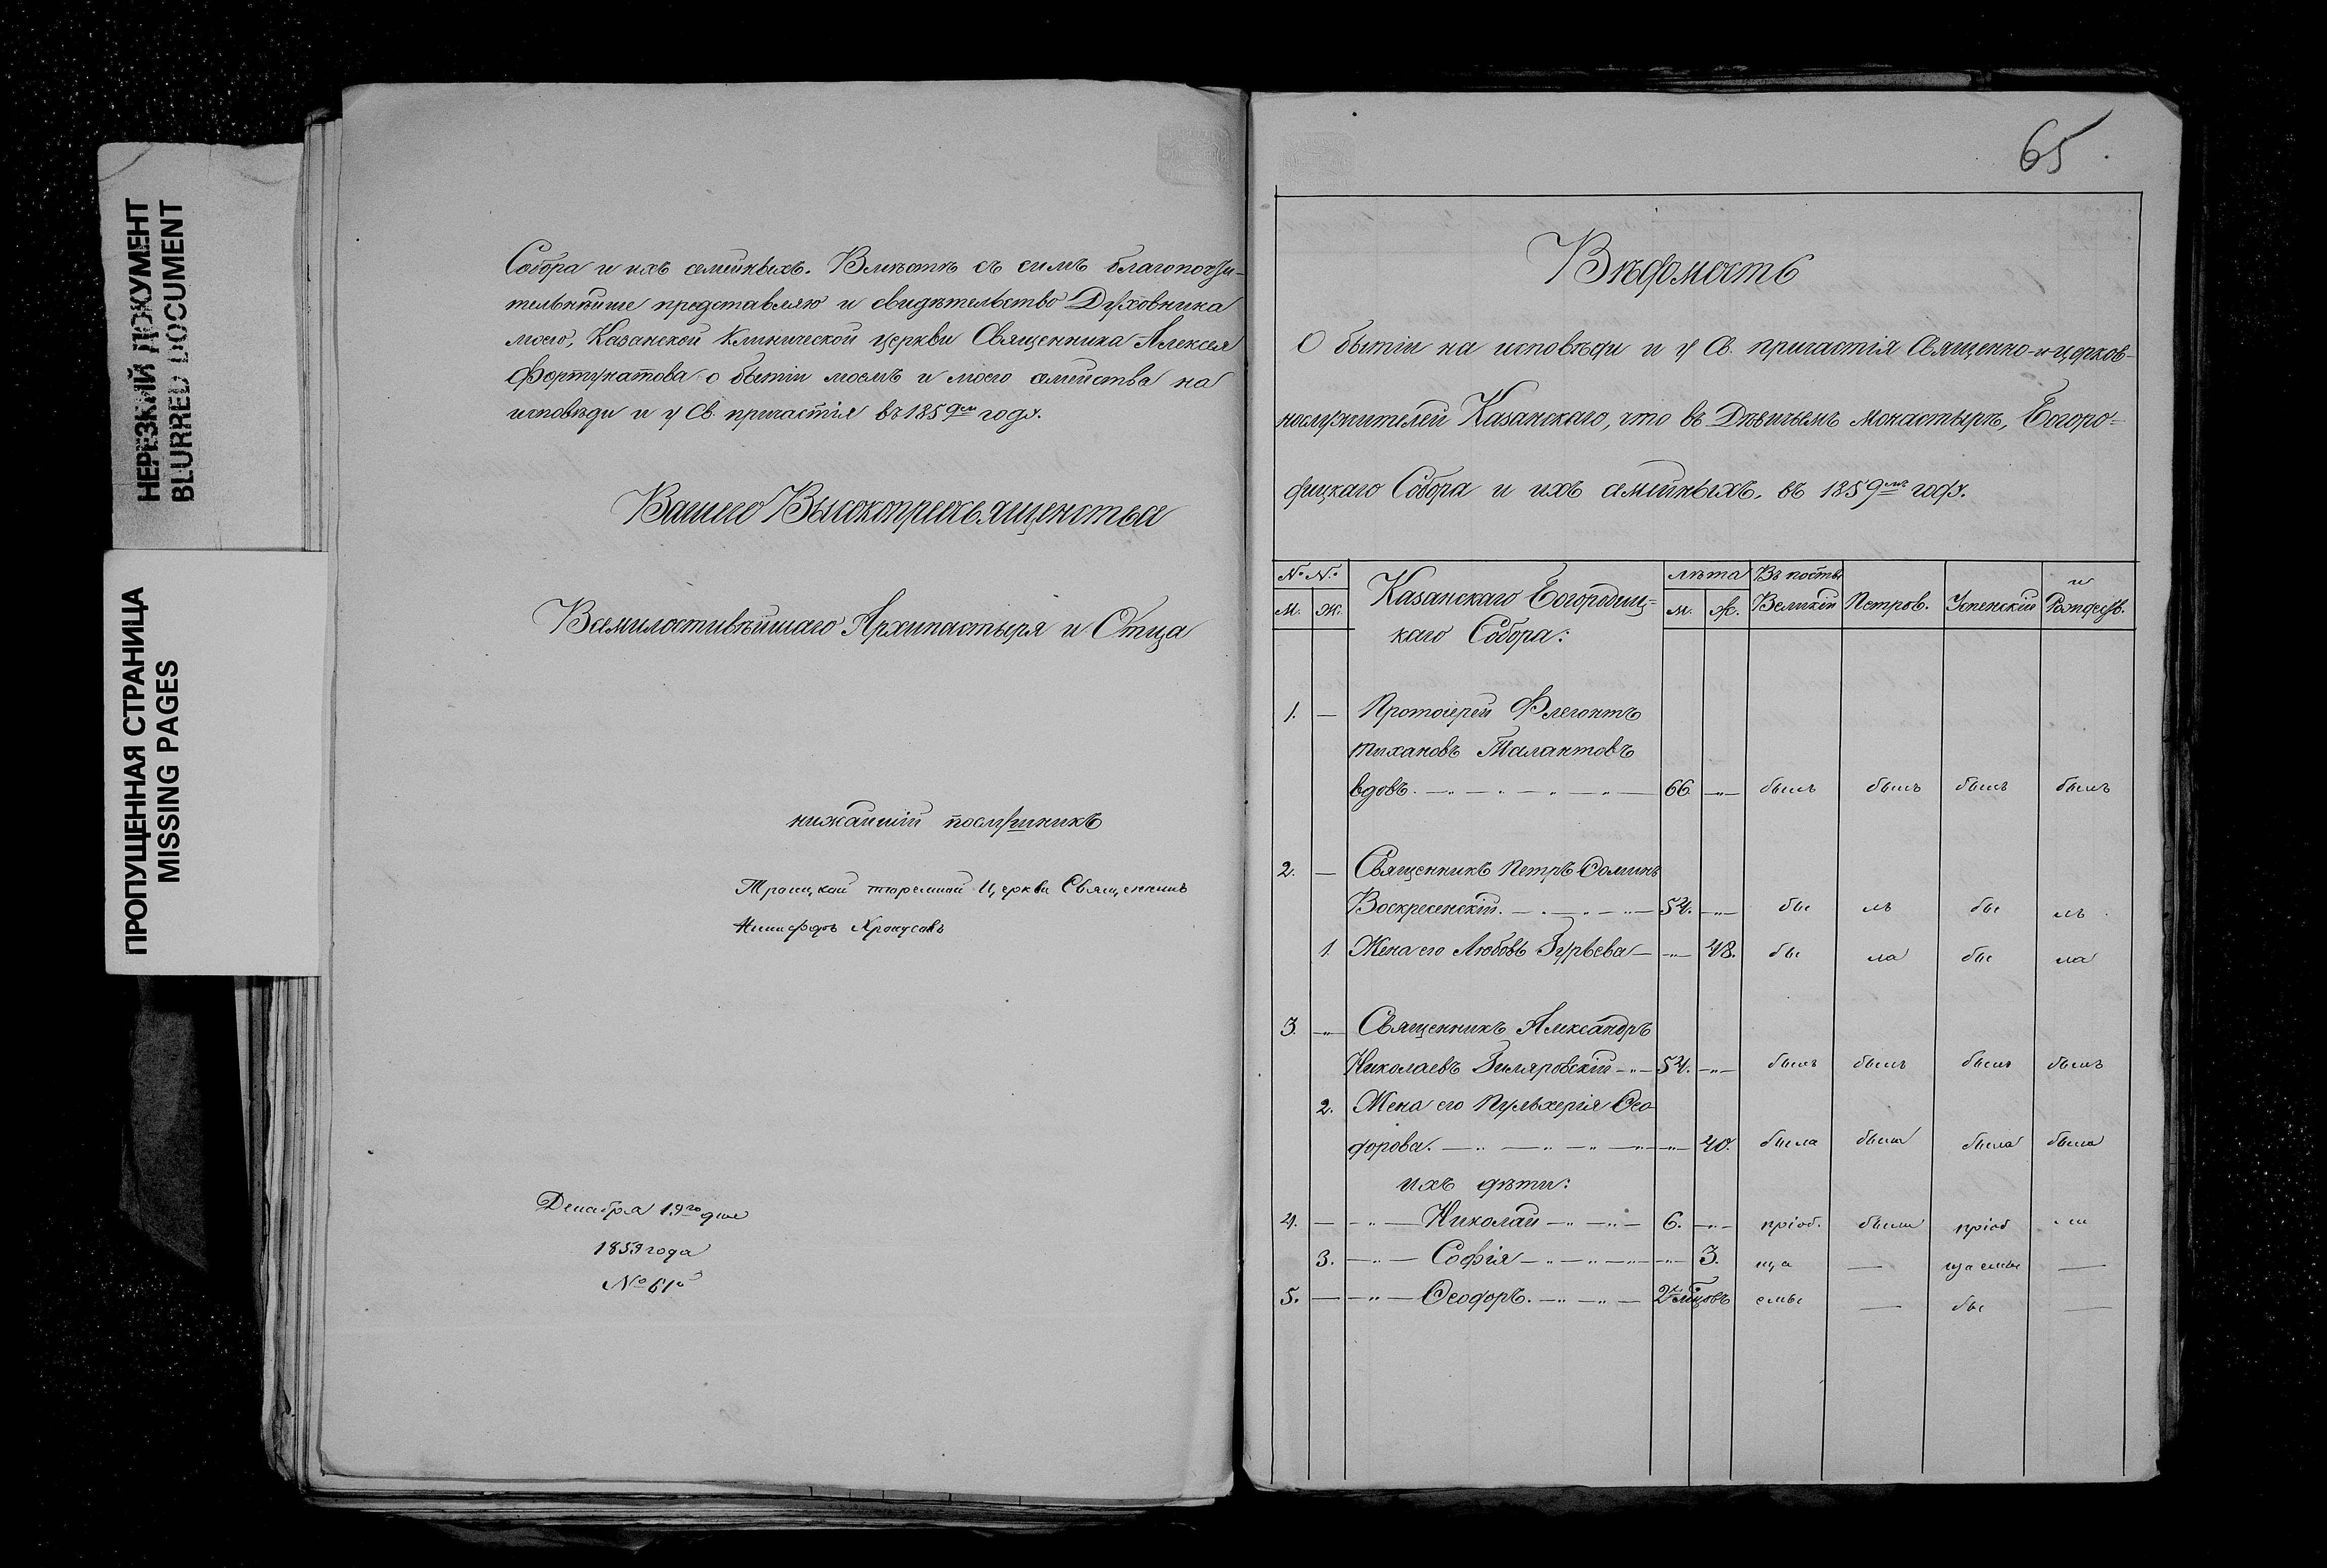 НЕРЕЗКИЙ ДОКУМЕНТ
BLURRED DOCUMENT
ПРОПУЩЕННАЯ СТРАНИЦА
MISSING PAGES
Собора и ихъ семейныхъ. Вмѣстѣ съ симъ благопочти-
тельнѣйше представляю и свидѣтельство Духовника
моего, Казанской Клинической церкви Священника Алексея
Фортунатова о бытіи моемъ и моего семейства на
исповѣди и у Св. причастія въ 1859ом году.
Вашего Высокопреосвященства
Всемилостивѣйшаго Архипастыря и Отца
нижайшій послушникъ
Троицкой тюремной Церкви Священникъ
Никифоръ
Декабря 19го дня
1859 года
№ 61
65.
Вѣдомость
О бытіи на исповѣди и у Св. причастія Священно-и-церков-
нослужителей Казанскаго, что въ Дѣвичьемъ монастырѣ, Богоро-
дицкаго Собора и ихъ семейныхъ, въ 1859мъ году.
№ №. Казанскаго Богородиц- лѣта Въ посты и
м. ж. м. ж. Великій Петров. Успенскій Рождеств.
каго Собора:
1. — Протоіерей Флегонтъ
Тихановъ Талантовъ
вдовъ. 66. — былъ былъ былъ былъ
2. — Священникъ Петръ Ѳоминъ
Воскресенскій. 54. — бы лъ бы лъ.
1. Жена его Любовь Гурьева — 48. бы ла бы ла
3. — Священникъ Александръ
Николаевъ Гиляровскій — 54. — былъ былъ былъ былъ
2. Жена его Пульхерія Ѳео
дорова. — 40. была была была была
ихъ дѣти:
4. — Николай — 6. — пріоб. были пріоб
3. — Софія — 3. ща — щаемы —
5. — Ѳеодоръ. — 2хъ мцовъ емы — бы —